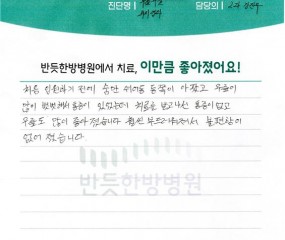 진단명 담당의
반듯한방병원에서 치료, 이만큼 좋아졌어요!
처음 입원하기 전에 숨만 쉬어도 등쪽이 아팠고 우울이
많이 있었는데 치료를 받고나선 통증이 없고
우울도 많이 좋아 졌습니다 훨씬 부드러워져서 불편함이
없어 졌습니다
반듯한방병원